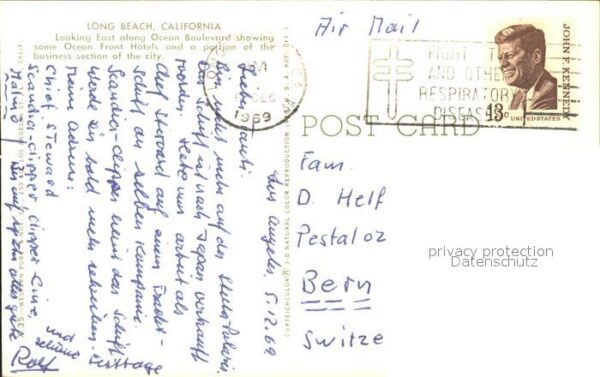 LONG BEACH, CALIFORNIA
Looking East along Ocean Boulevard showing
some Ocean Front Hotels and a portion of the
business section of the city.
Air Mail
PM
DEC
1969
FIGHT T
AND OTHE
RESPIRATORY
DISEAS
JOHN F. KENNEDY
13c
UNITED STATES
POST CARD
CURTEICHCOLOR® 3-D NATURAL COLOR REPRODUCTION
Los Angeles, 5.12.69
bin nicht mehr auf der
Das Schiff ist nach Japan verkauft
worden. Habe nun arbeit als
Chef Steward auf einem Fracht-
schiff der selben Kompanie.
Scandia-Clipper heisst das Schiff
werde Dir bald mehr schreiben.
Meine Adresse:
Chief Steward
Scandia-Clipper Clipper-Line
alles gute
und
schöne Festtage
Rolf
Fam.
D. Helf
Pestaloz
Bern
Switze
privacy protection
Datenschutz